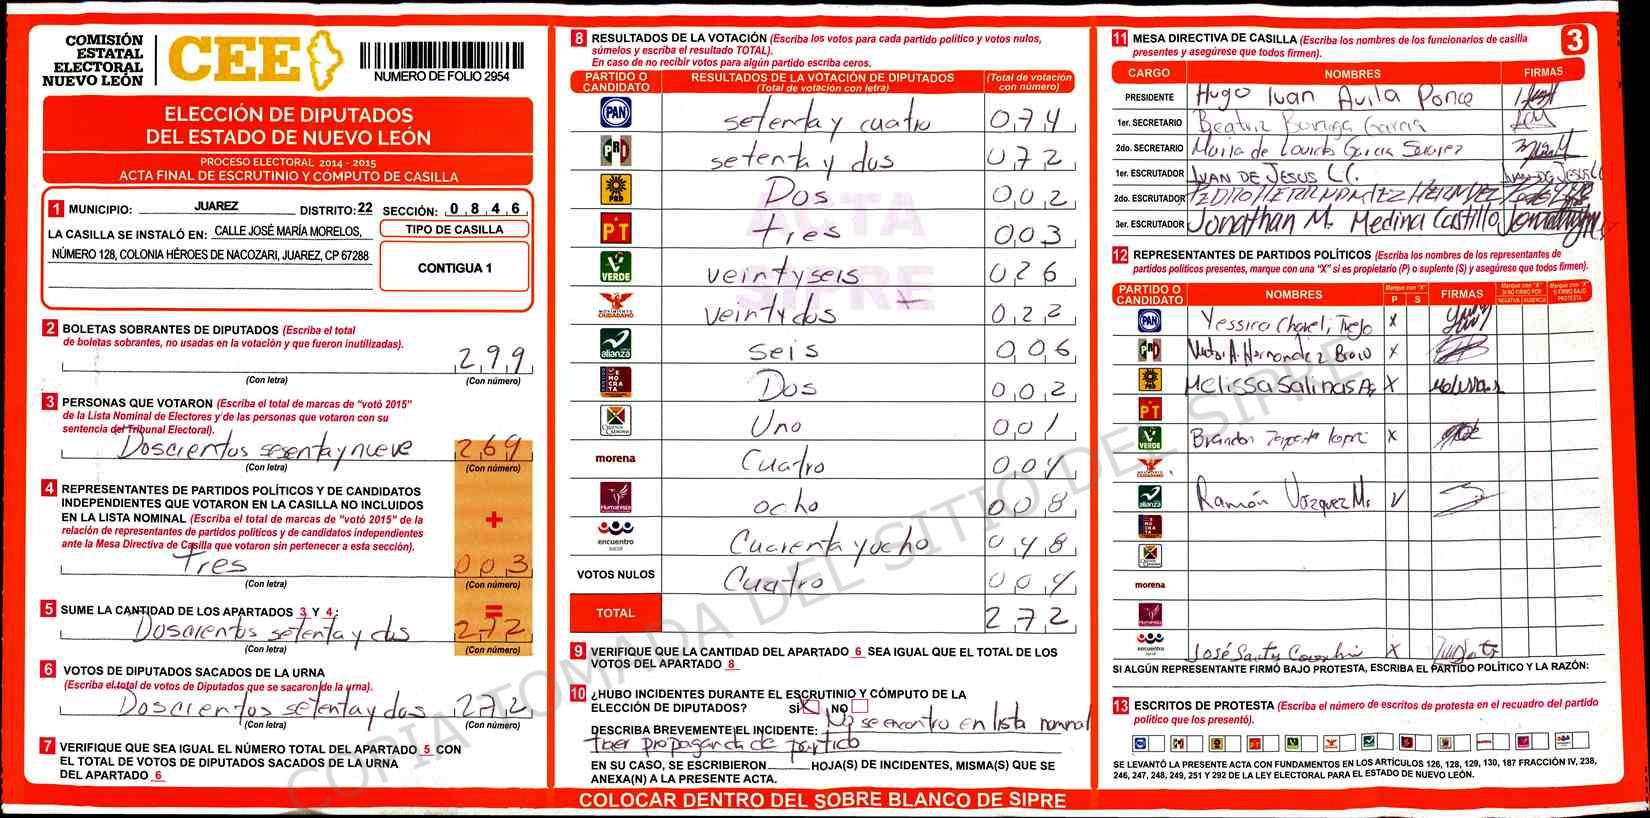 COMISIÓN
ESTATAL
ELECTORAL
NUEVO LEÓN
CEE
NUMERO DE FOLIO 2954
ELECCIÓN DE DIPUTADOS
DEL ESTADO DE NUEVO LEÓN
PROCESO ELECTORAL 2014 - 2015
ACTA FINAL DE ESCRUTINIO Y CÓMPUTO DE CASILLA
1 MUNICIPIO: JUAREZ DISTRITO: 22 SECCIÓN: 0 8 4 6
LA CASILLA SE INSTALÓ EN: CALLE JOSÉ MARÍA MORELOS,
NÚMERO 128, COLONIA HÉROES DE NACOZARI, JUAREZ, CP 67288
TIPO DE CASILLA
CONTIGUA 1
2 BOLETAS SOBRANTES DE DIPUTADOS (Escriba el total
de boletas sobrantes, no usadas en la votación y que fueron inutilizadas).
299
(Con letra) (Con número)
3 PERSONAS QUE VOTARON (Escriba el total de marcas de "votó 2015"
de la Lista Nominal de Electores y de las personas que votaron con su
sentencia del Tribunal Electoral).
Doscientos sesenta y nueve 269
(Con letra) (Con número)
4 REPRESENTANTES DE PARTIDOS POLÍTICOS Y DE CANDIDATOS
INDEPENDIENTES QUE VOTARON EN LA CASILLA NO INCLUIDOS
EN LA LISTA NOMINAL (Escriba el total de marcas de "votó 2015" de la
relación de representantes de partidos políticos y de candidatos independientes
ante la Mesa Directiva de Casilla que votaron sin pertenecer a esta sección).
+
Tres 003
(Con letra) (Con número)
5 SUME LA CANTIDAD DE LOS APARTADOS 3 Y 4: =
Doscientos setenta y dos 272
(Con letra) (Con número)
6 VOTOS DE DIPUTADOS SACADOS DE LA URNA
(Escriba el total de votos de Diputados que se sacaron de la urna).
Doscientos setenta y dos 272
(Con letra) (Con número)
7 VERIFIQUE QUE SEA IGUAL EL NÚMERO TOTAL DEL APARTADO 5 CON
EL TOTAL DE VOTOS DE DIPUTADOS SACADOS DE LA URNA
DEL APARTADO 6
8 RESULTADOS DE LA VOTACIÓN (Escriba los votos para cada partido político y votos nulos,
súmelos y escriba el resultado TOTAL).
En caso de no recibir votos para algún partido escriba ceros.
PARTIDO O CANDIDATO RESULTADOS DE LA VOTACIÓN DE DIPUTADOS (Total de votación con letra) (Total de votación con número)
PAN setenta y cuatro 074
PRD setenta y dos 072
PRD Dos 002
PT tres 003
VERDE veintyseis 026
MOVIMIENTO CIUDADANO veintydos 022
alianza seis 006
DEMOCRATA Dos 002
Uno 001
morena Cuatro 004
Humanista ocho 008
encuentro social Cuarenta y ocho 048
VOTOS NULOS Cuatro 004
TOTAL 272
ACTA
SIPRE
9 VERIFIQUE QUE LA CANTIDAD DEL APARTADO 6 SEA IGUAL QUE EL TOTAL DE LOS
VOTOS DEL APARTADO 8
10 ¿HUBO INCIDENTES DURANTE EL ESCRUTINIO Y CÓMPUTO DE LA
ELECCIÓN DE DIPUTADOS? SÍ X NO
DESCRIBA BREVEMENTE EL INCIDENTE: No se encontro en lista nominal
traer propaganda de partido
EN SU CASO, SE ESCRIBIERON HOJA(S) DE INCIDENTES, MISMA(S) QUE SE
ANEXA(N) A LA PRESENTE ACTA.
COLOCAR DENTRO DEL SOBRE BLANCO DE SIPRE
11 MESA DIRECTIVA DE CASILLA (Escriba los nombres de los funcionarios de casilla
presentes y asegúrese que todos firmen).
3
CARGO NOMBRES FIRMAS
PRESIDENTE Hugo Ivan Avila Ponce
1er. SECRETARIO Beatriz Garcia
2do. SECRETARIO Maria de Lourdes Garcia Suarez
1er. ESCRUTADOR IVAN DE JESUS L.C. IVAN DE JESUS LC
2do. ESCRUTADOR PEDRO HERNANDEZ
3er. ESCRUTADOR Jonathan M. Medina Castillo
12 REPRESENTANTES DE PARTIDOS POLÍTICOS (Escriba los nombres de los representantes de
partidos políticos presentes, marque con una "X" si es propietario (P) o suplente (S) y asegúrese que todos firmen).
PARTIDO O CANDIDATO NOMBRES Marque con "X" P S FIRMAS Marque con "X" SI NO FIRMÓ POR NEGATIVA AUSENCIA Marque con "X" SI FIRMÓ BAJO PROTESTA
PAN Yessica Trejo X
PRD Victor A. Hernandez Bravo X
PRD Melissa Salinas X
PT
VERDE Brandon X
alianza Ramón Vazquez M.
morena
encuentro social José X
SI ALGÚN REPRESENTANTE FIRMÓ BAJO PROTESTA, ESCRIBA EL PARTIDO POLÍTICO Y LA RAZÓN:
13 ESCRITOS DE PROTESTA (Escriba el número de escritos de protesta en el recuadro del partido
político que los presentó).
SE LEVANTÓ LA PRESENTE ACTA CON FUNDAMENTOS EN LOS ARTÍCULOS 126, 128, 129, 130, 187 FRACCIÓN IV, 238,
246, 247, 248, 249, 251 Y 292 DE LA LEY ELECTORAL PARA EL ESTADO DE NUEVO LEÓN.
COPIA TOMADA DEL SITIO DEL SIPRE